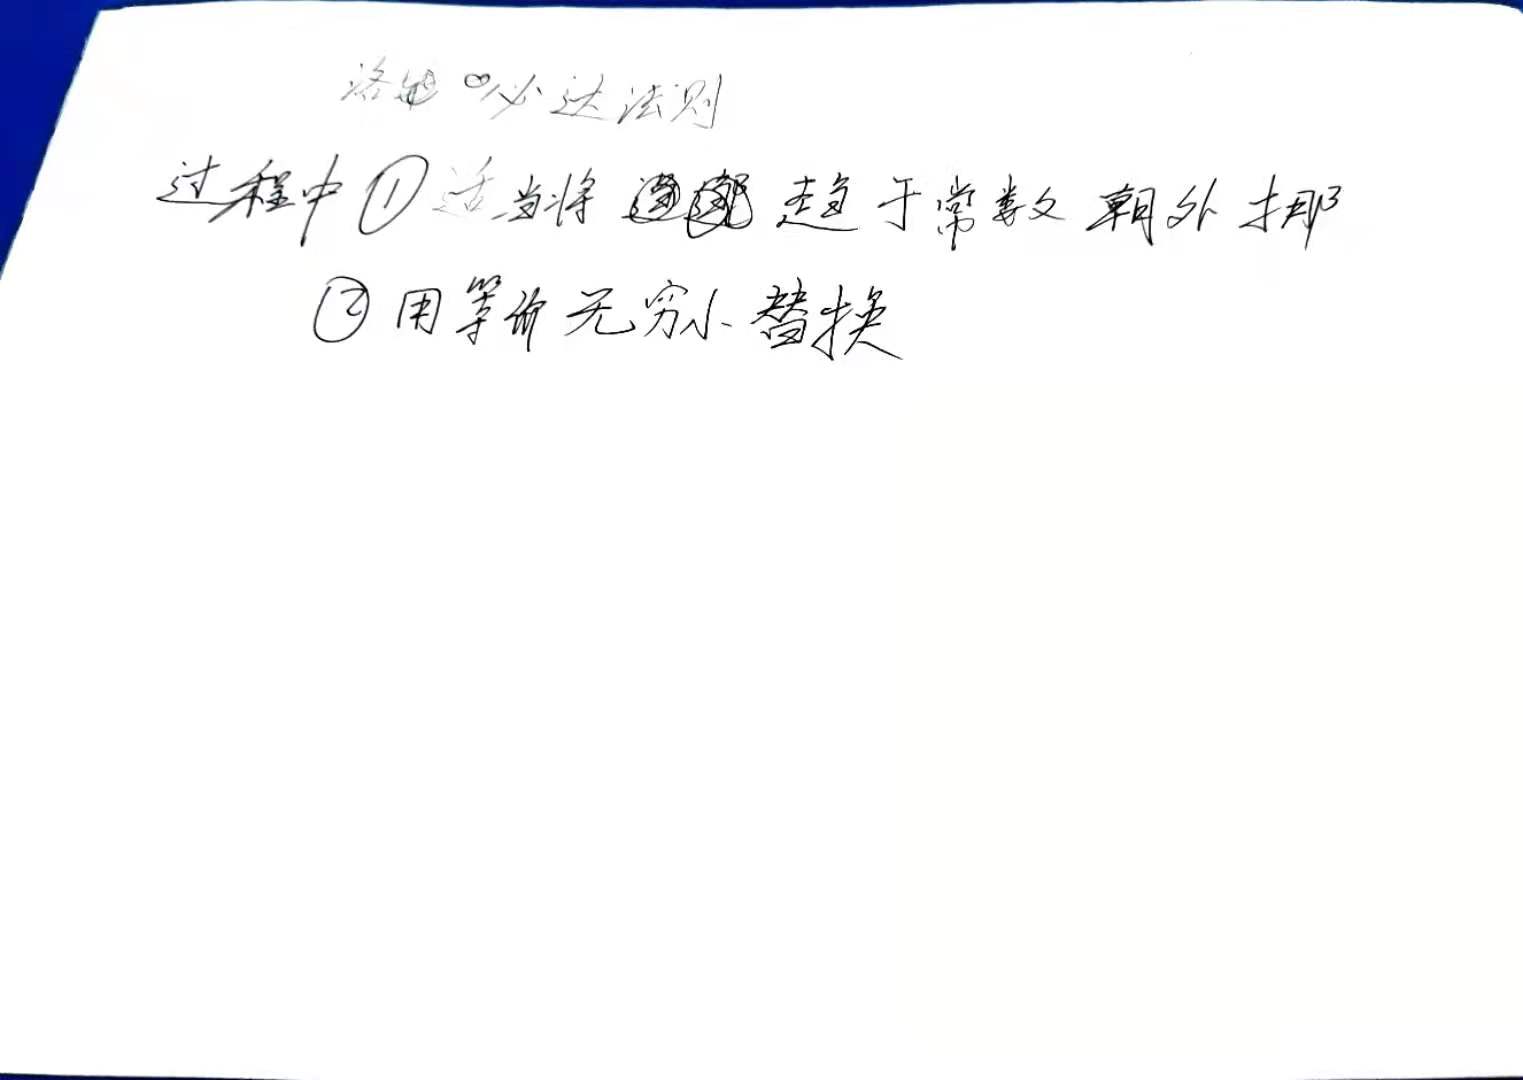 洛必达法则
过程中 ① 适当将 趋于常数 朝外挪
② 用等价无穷小替换